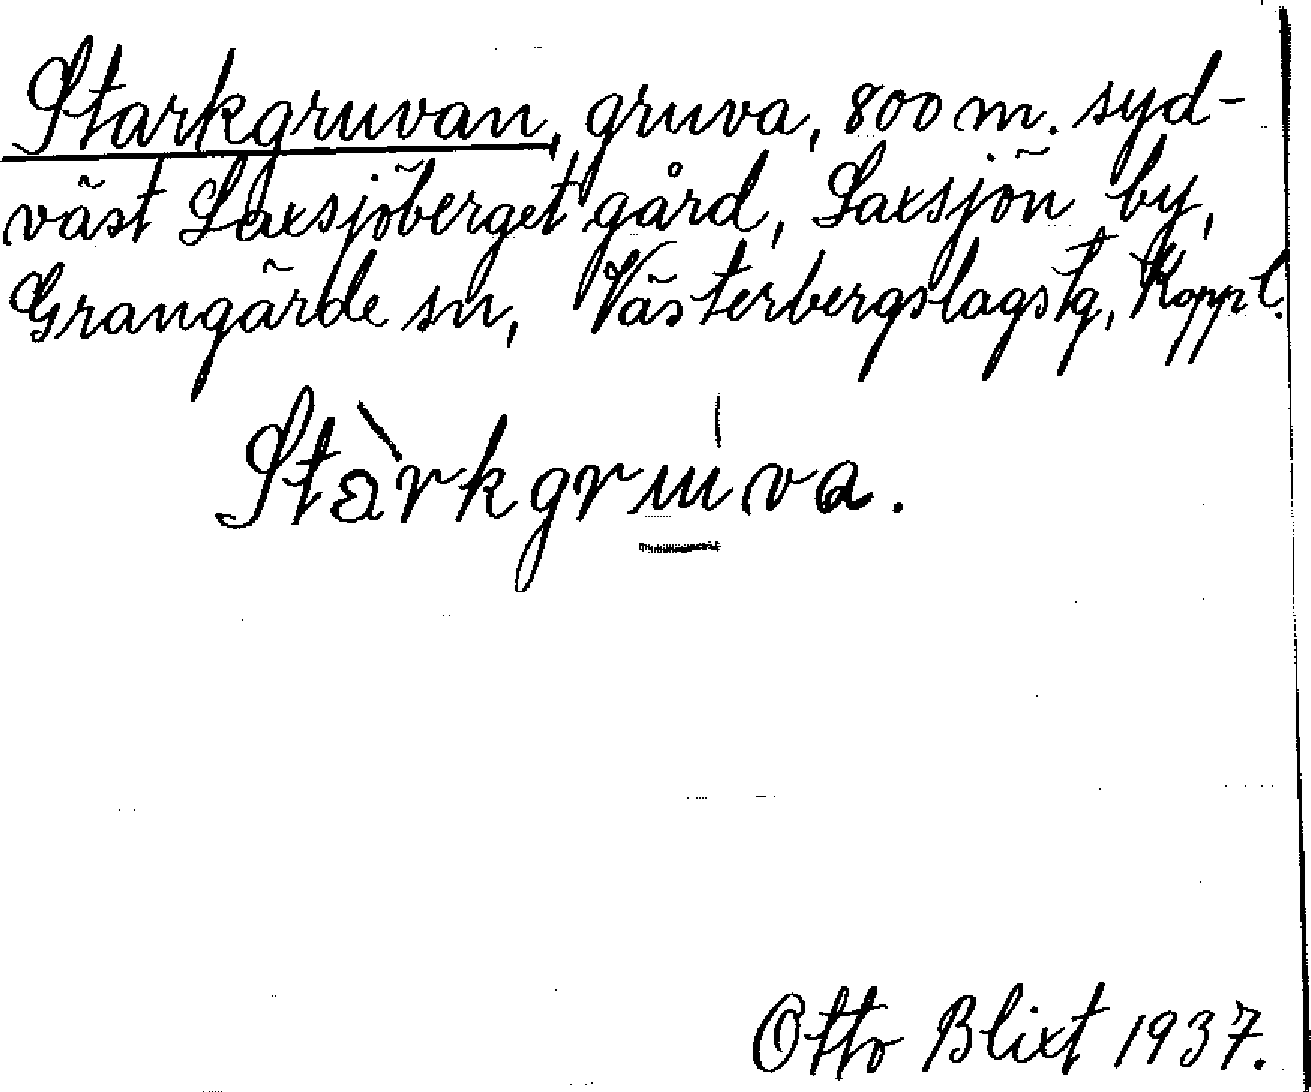 Starkgruvan, gruva, 800 m. syd-
väst Saxsjöberget gård, Saxsjön by,
Grangärde sn, Västerbergslags tg, Koppl.
Stàrkgruva.
Otto Blixt 1937.